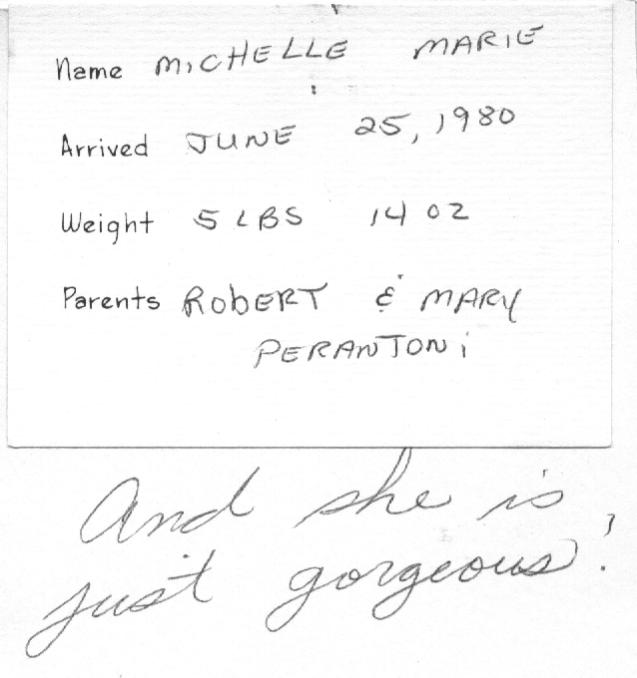 Name MICHELLE MARIE
Arrived JUNE 25, 1980
Weight 5 LBS 14 OZ
Parents ROBERT & MARY
PERANTONI
And she is
just gorgeous!